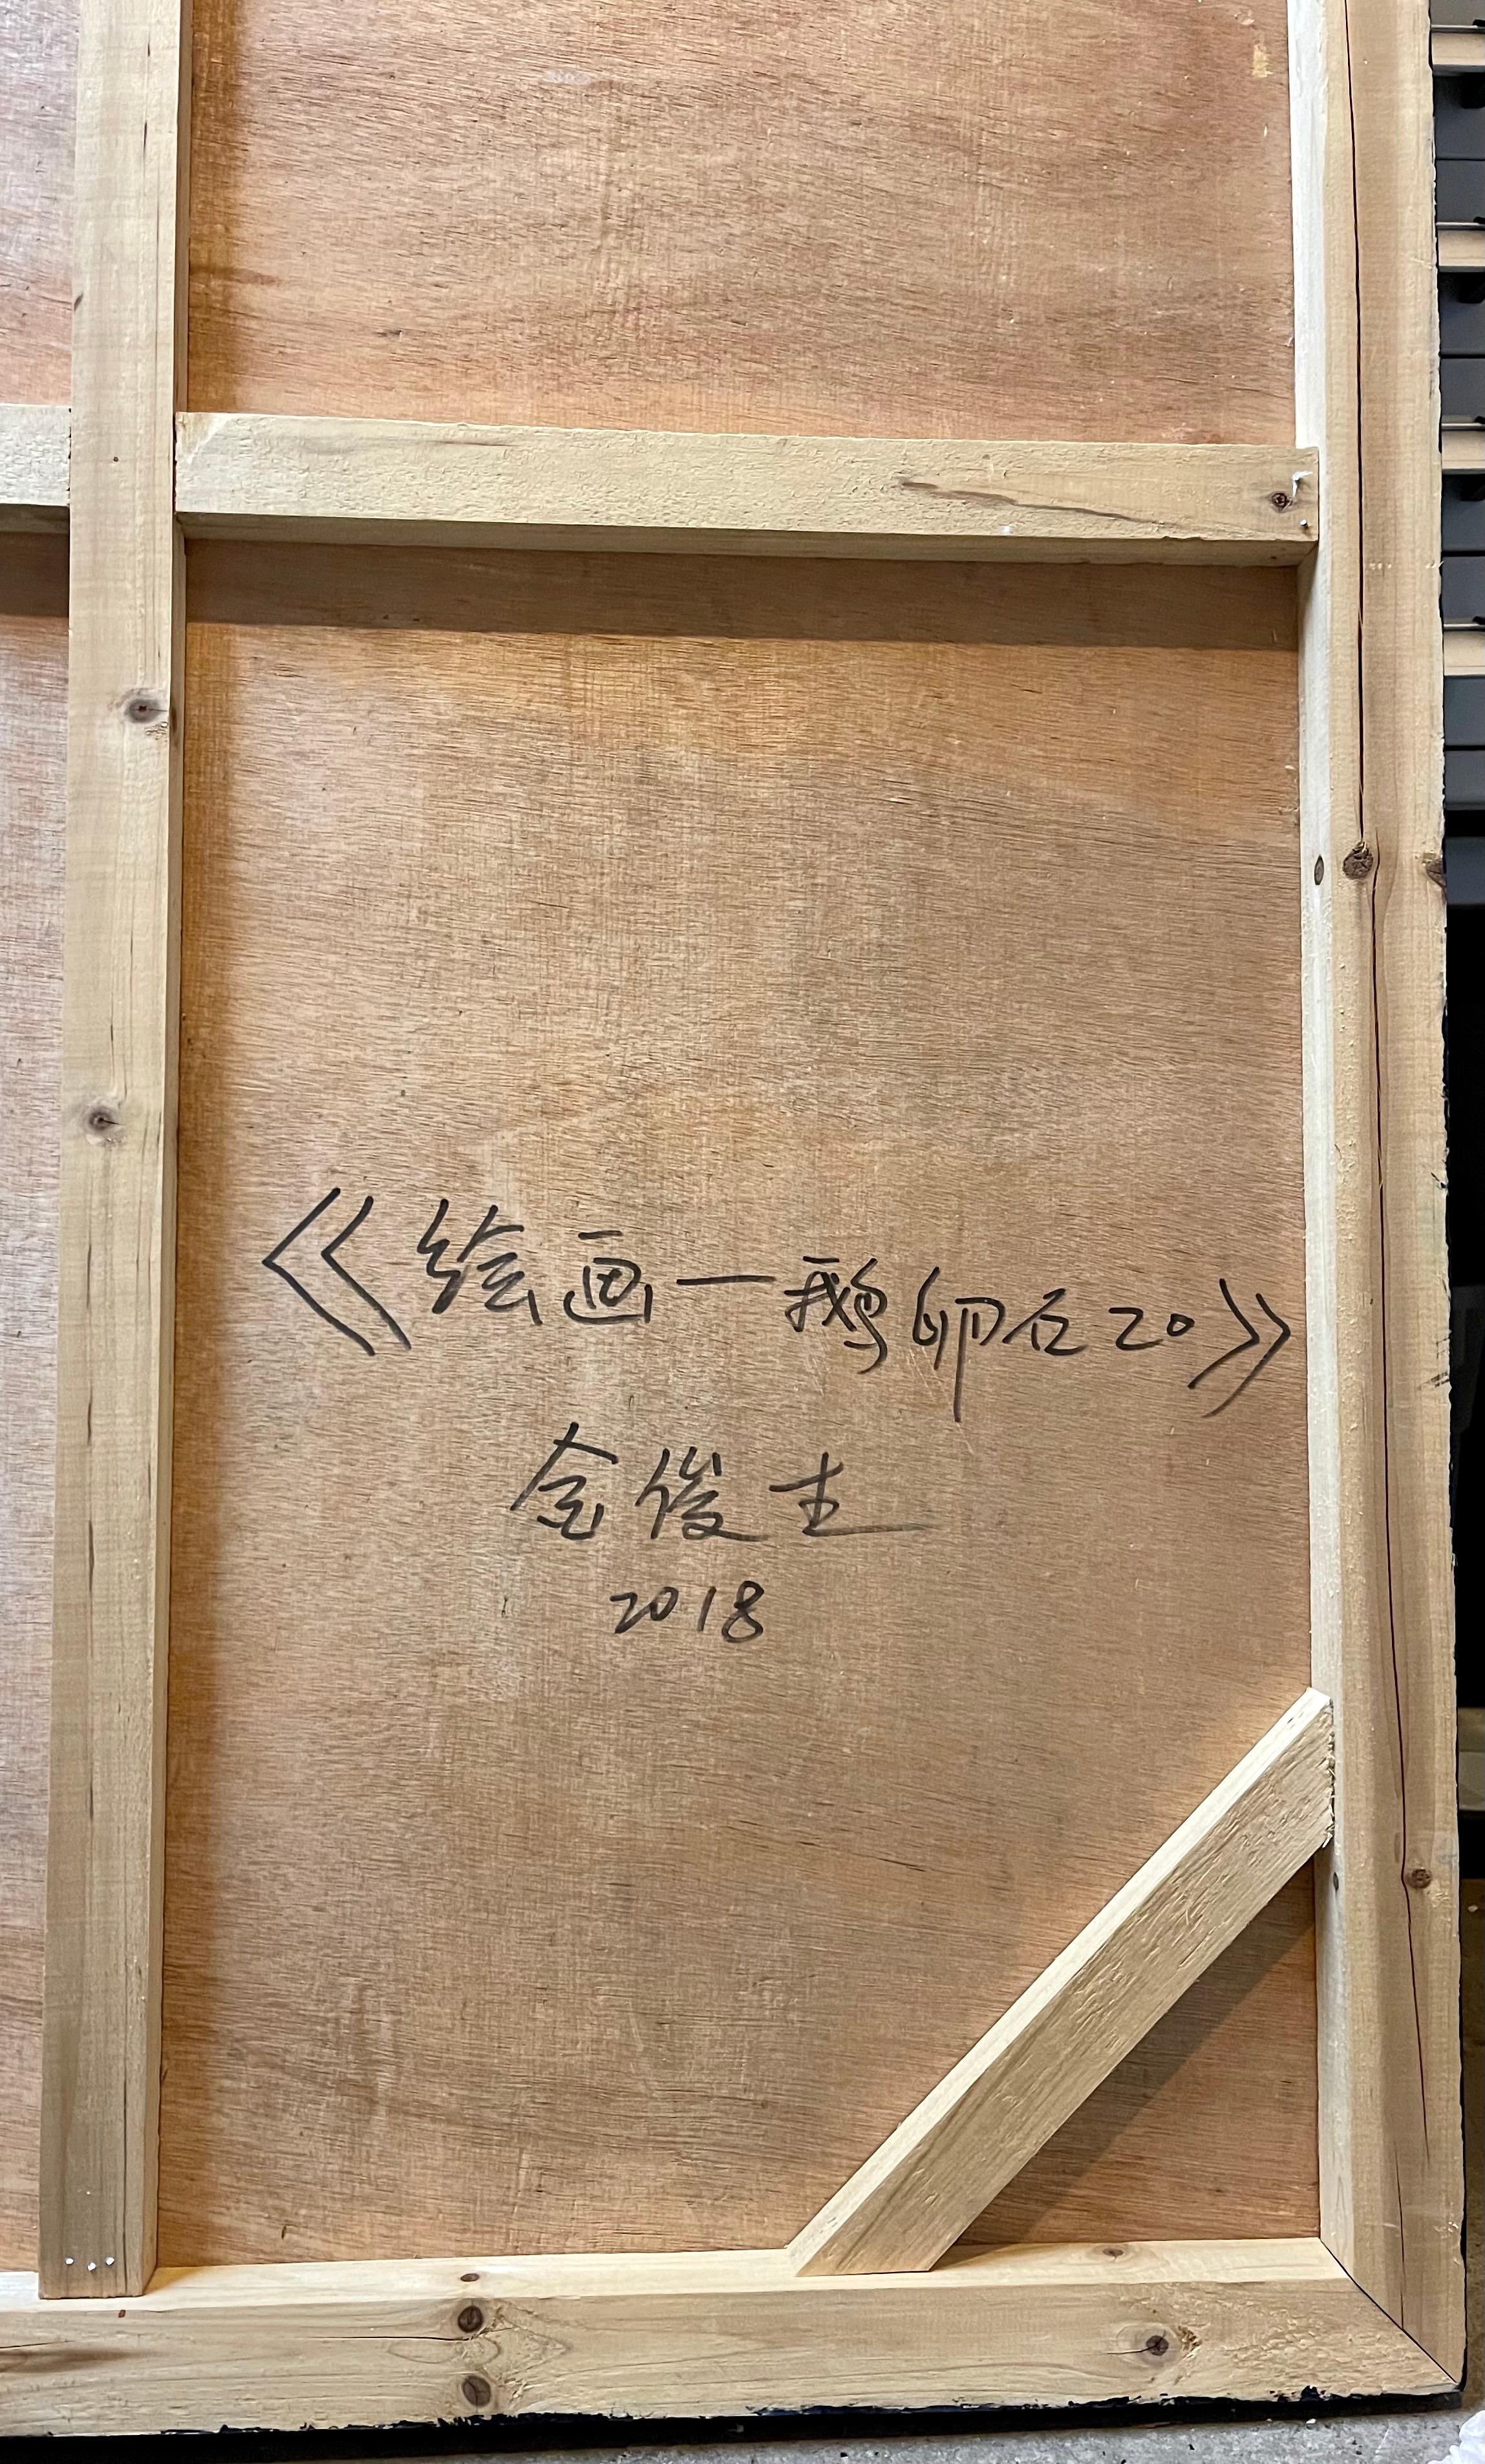 《绘画一鹅卵石20》
金俊生
2018